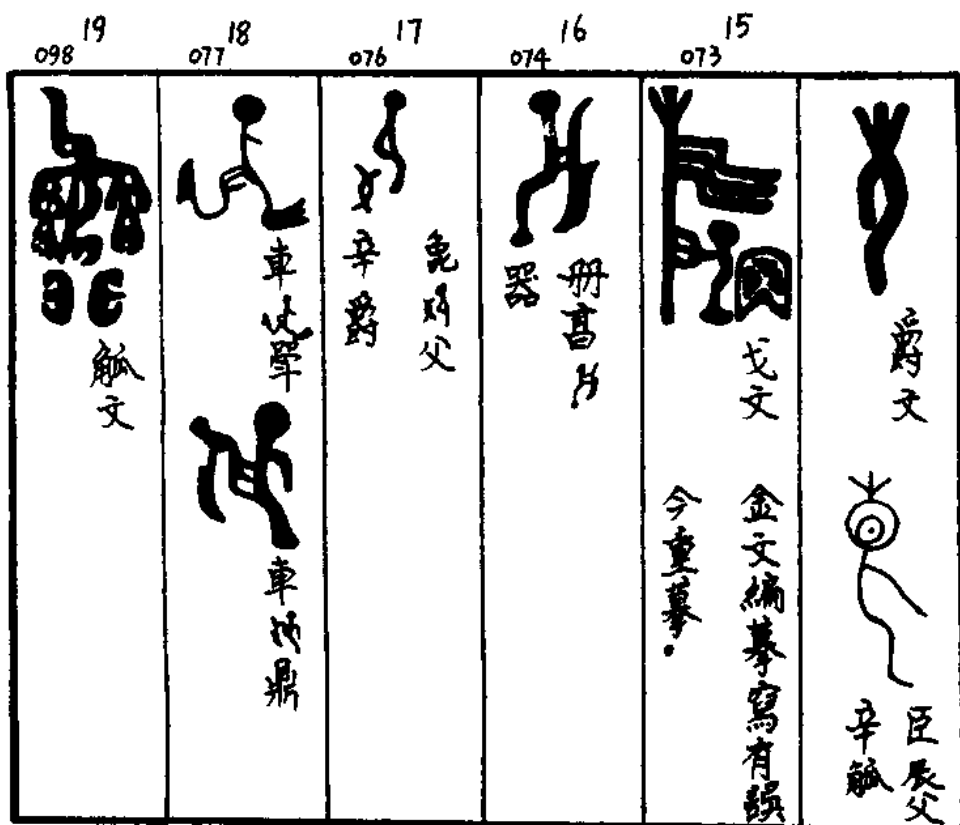 爵文
臣辰父
辛觚
15
073
戈文
金文編摹寫有誤
今重摹.
16
074
冊
器
17
076
父
辛爵
18
077
車 斝
車 鼎
19
098
觚文